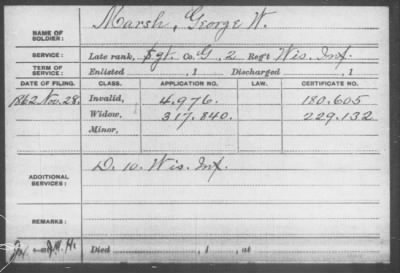 NAME OF SOLDIER: Marsh, George W.
SERVICE: Late rank, Sgt. Co. G, 2 Reg't Wis. Inf.
TERM OF SERVICE: Enlisted , 1 Discharged , 1
DATE OF FILING. CLASS. APPLICATION NO. LAW. CERTIFICATE NO.
1862 Nov. 28. Invalid, 4.976. 180.605
Widow, 317.840. 229.132
Minor,
ADDITIONAL SERVICES: D. 10. Wis. Inf.
REMARKS:
Died , 1 , at